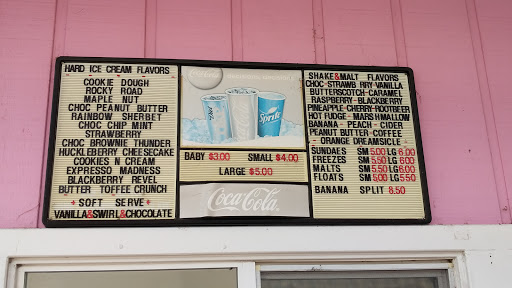 HARD ICE CREAM FLAVORS
COOKIE DOUGH
ROCKY ROAD
MAPLE NUT
CHOC PEANUT BUTTER
RAINBOW SHERBET
CHOC CHIP MINT
STRAWBERRY
CHOC BROWNIE THUNDER
HUCKLEBERRY CHEESECAKE
COOKIES N CREAM
EXPRESSO MADNESS
BLACKBERRY REVEL
BUTTER TOFFEE CRUNCH
+ SOFT SERVE +
VANILLA&SWIRL&CHOCOLATE
Coca-Cola
Sprite
BABY $3.00 SMALL $4.00
LARGE $5.00
Coca-Cola
SHAKE&MALT FLAVORS
CHOC-STRAWBRRY-VANILLA
BUTTERSCOTCH-CARAMEL
RASPBERRY-BLACKBERRY
PINEAPPLE-CHERRY-ROOTBEER
HOT FUDGE-MARSHMALLOW
BANANA - PEACH - CIDER
PEANUT BUTTER-COFFEE
- ORANGE DREAMSICLE -
SUNDAES SM 5.00 LG 6.00
FREEZES SM 5.50 LG 6.00
MALTS SM 5.50 LG 6.00
FLOATS SM 5.00 LG 5.50
BANANA SPLIT 8.50